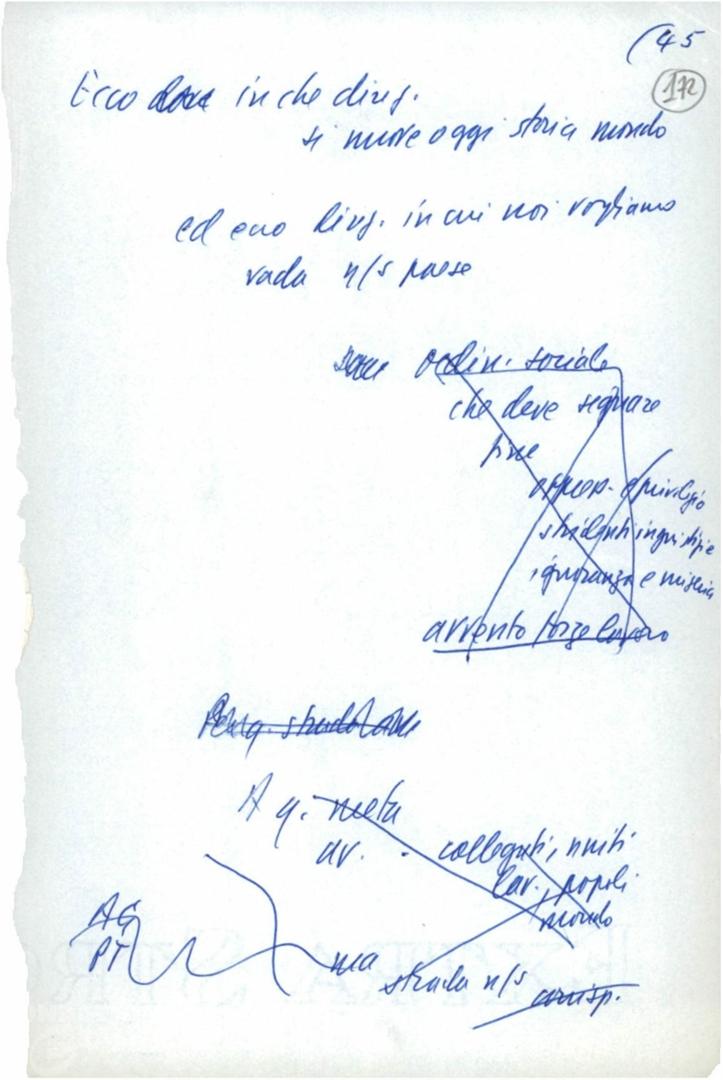 (45
172
Ecco dove in che direz.
si muove oggi storia mondo
ed ecco direz. in cui noi vogliamo
vada n/s paese
ordin. sociale
che deve segnare
fine
oppress. e privilegio
ingiustizie
ignoranza e miseria
avvento forze lavoro
A q. meta
av. - collegati, uniti
lav., popoli
mondo
AG
PT
ma
strada n/s